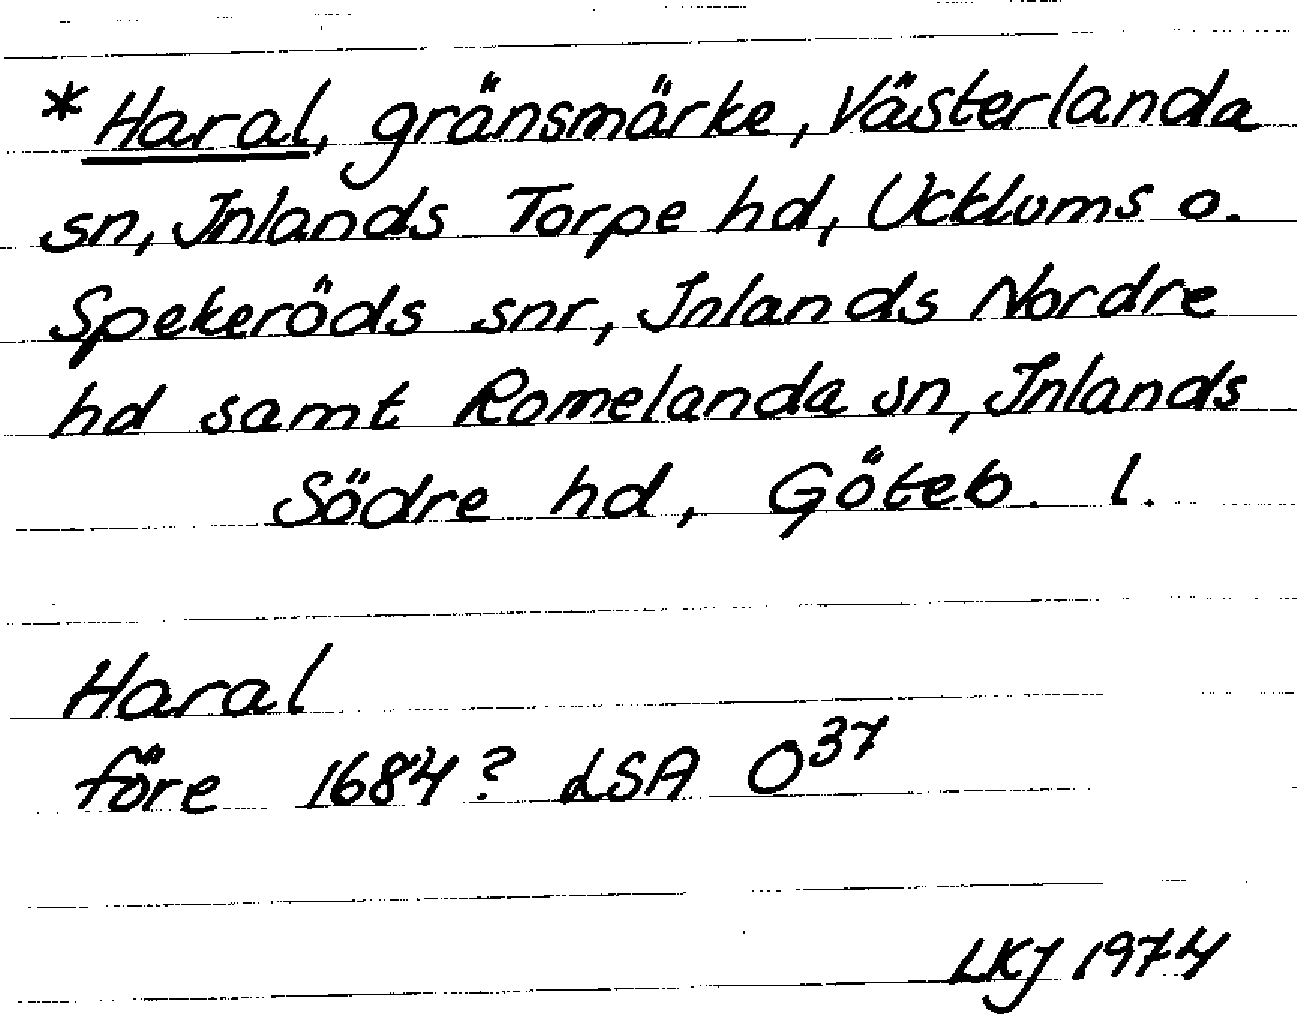 *Haral, gränsmärke, Västerlanda
sn, Inlands Torpe hd, Ucklums o.
Spekeröds snr, Inlands Nordre
hd samt Romelanda sn, Inlands
Södre hd, Göteb. l.
Haral
före 1684? LSA O³⁷
LKJ 1974